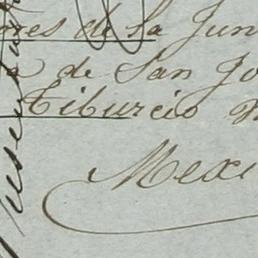 res de la Jun
de San Jo
Tiburcio
Mexi